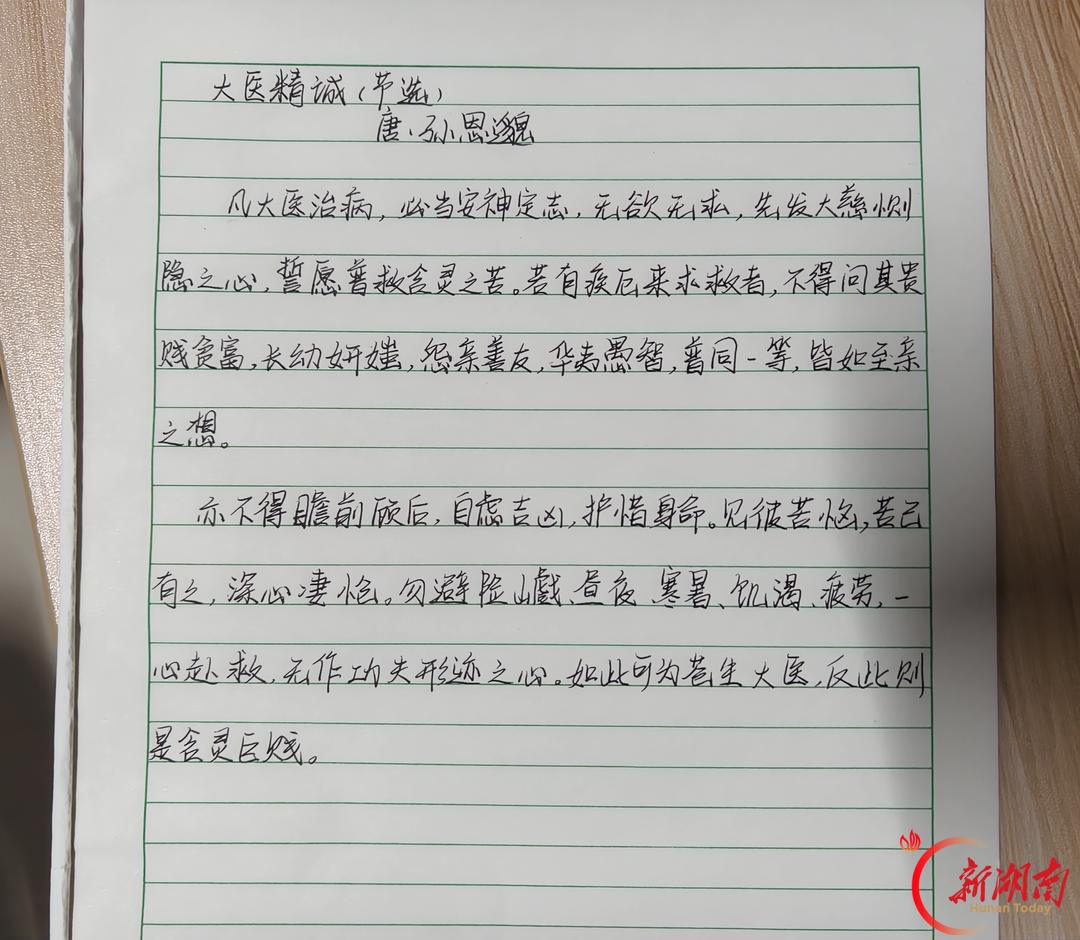 大医精诚(节选)
唐·孙思邈
凡大医治病，必当安神定志，无欲无求，先发大慈恻
隐之心，誓愿普救含灵之苦。若有疾厄来求救者，不得问其贵
贱贫富，长幼妍媸，怨亲善友，华夷愚智，普同一等，皆如至亲
之想。
亦不得瞻前顾后，自虑吉凶，护惜身命。见彼苦恼，若己
有之，深心凄怆。勿避险巇、昼夜、寒暑、饥渴、疲劳，一
心赴救，无作功夫形迹之心。如此可为苍生大医，反此则
是含灵巨贼。
新湖南
Hunan Today